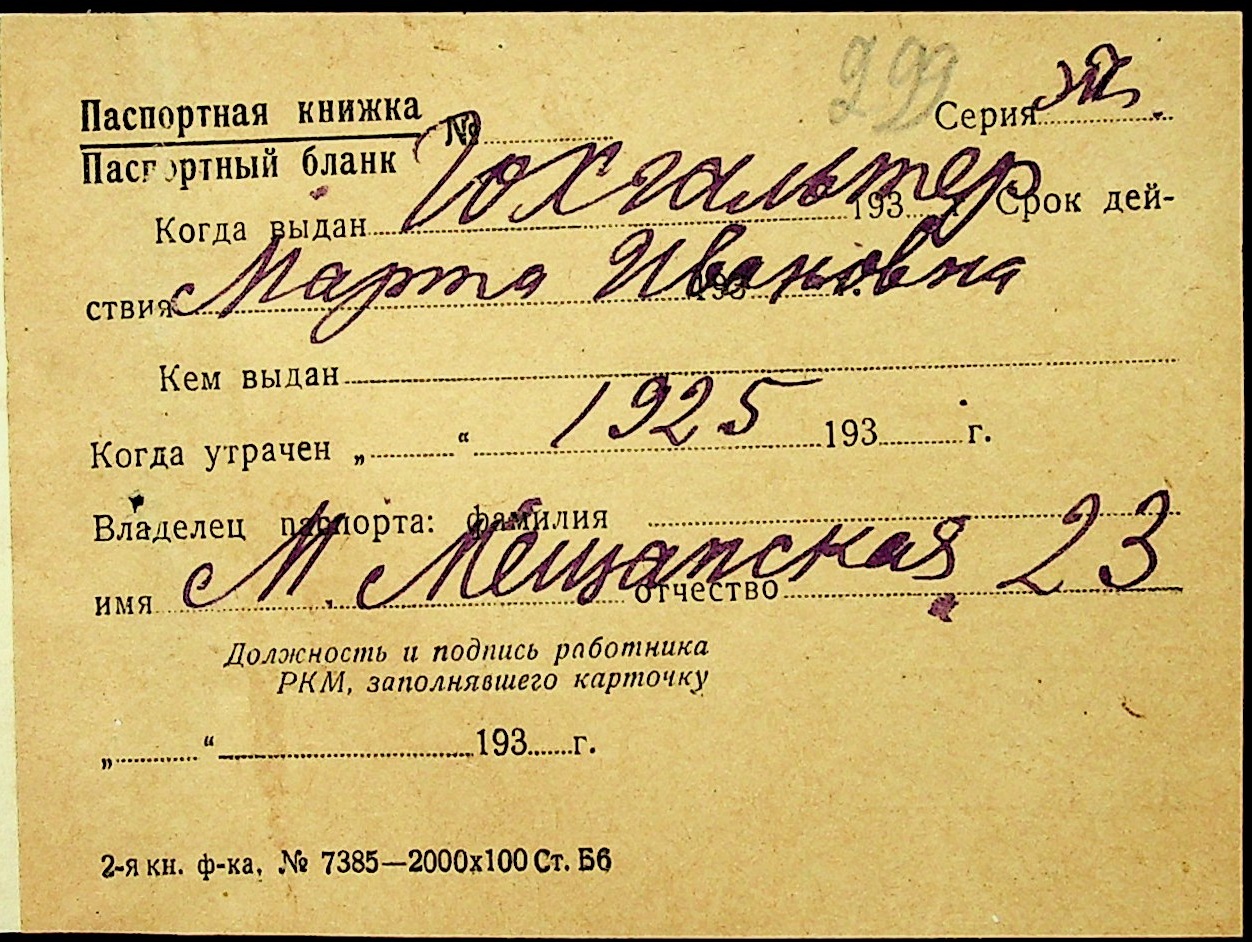 299
Паспортная книжка № Серия
Паспортный бланк
Гохгальтер
Когда выдан 193 г. Срок дей-
Марта Ивановна
ствия 193 г.
Кем выдан
1925
Когда утрачен „ “ 193 г.
Владелец паспорта: фамилия
М. Мещанская 23
имя отчество
Должность и подпись работника
РКМ, заполнявшего карточку
„ “ 193 г.
2-я кн. ф-ка, № 7385—2000х100 Ст. Б6